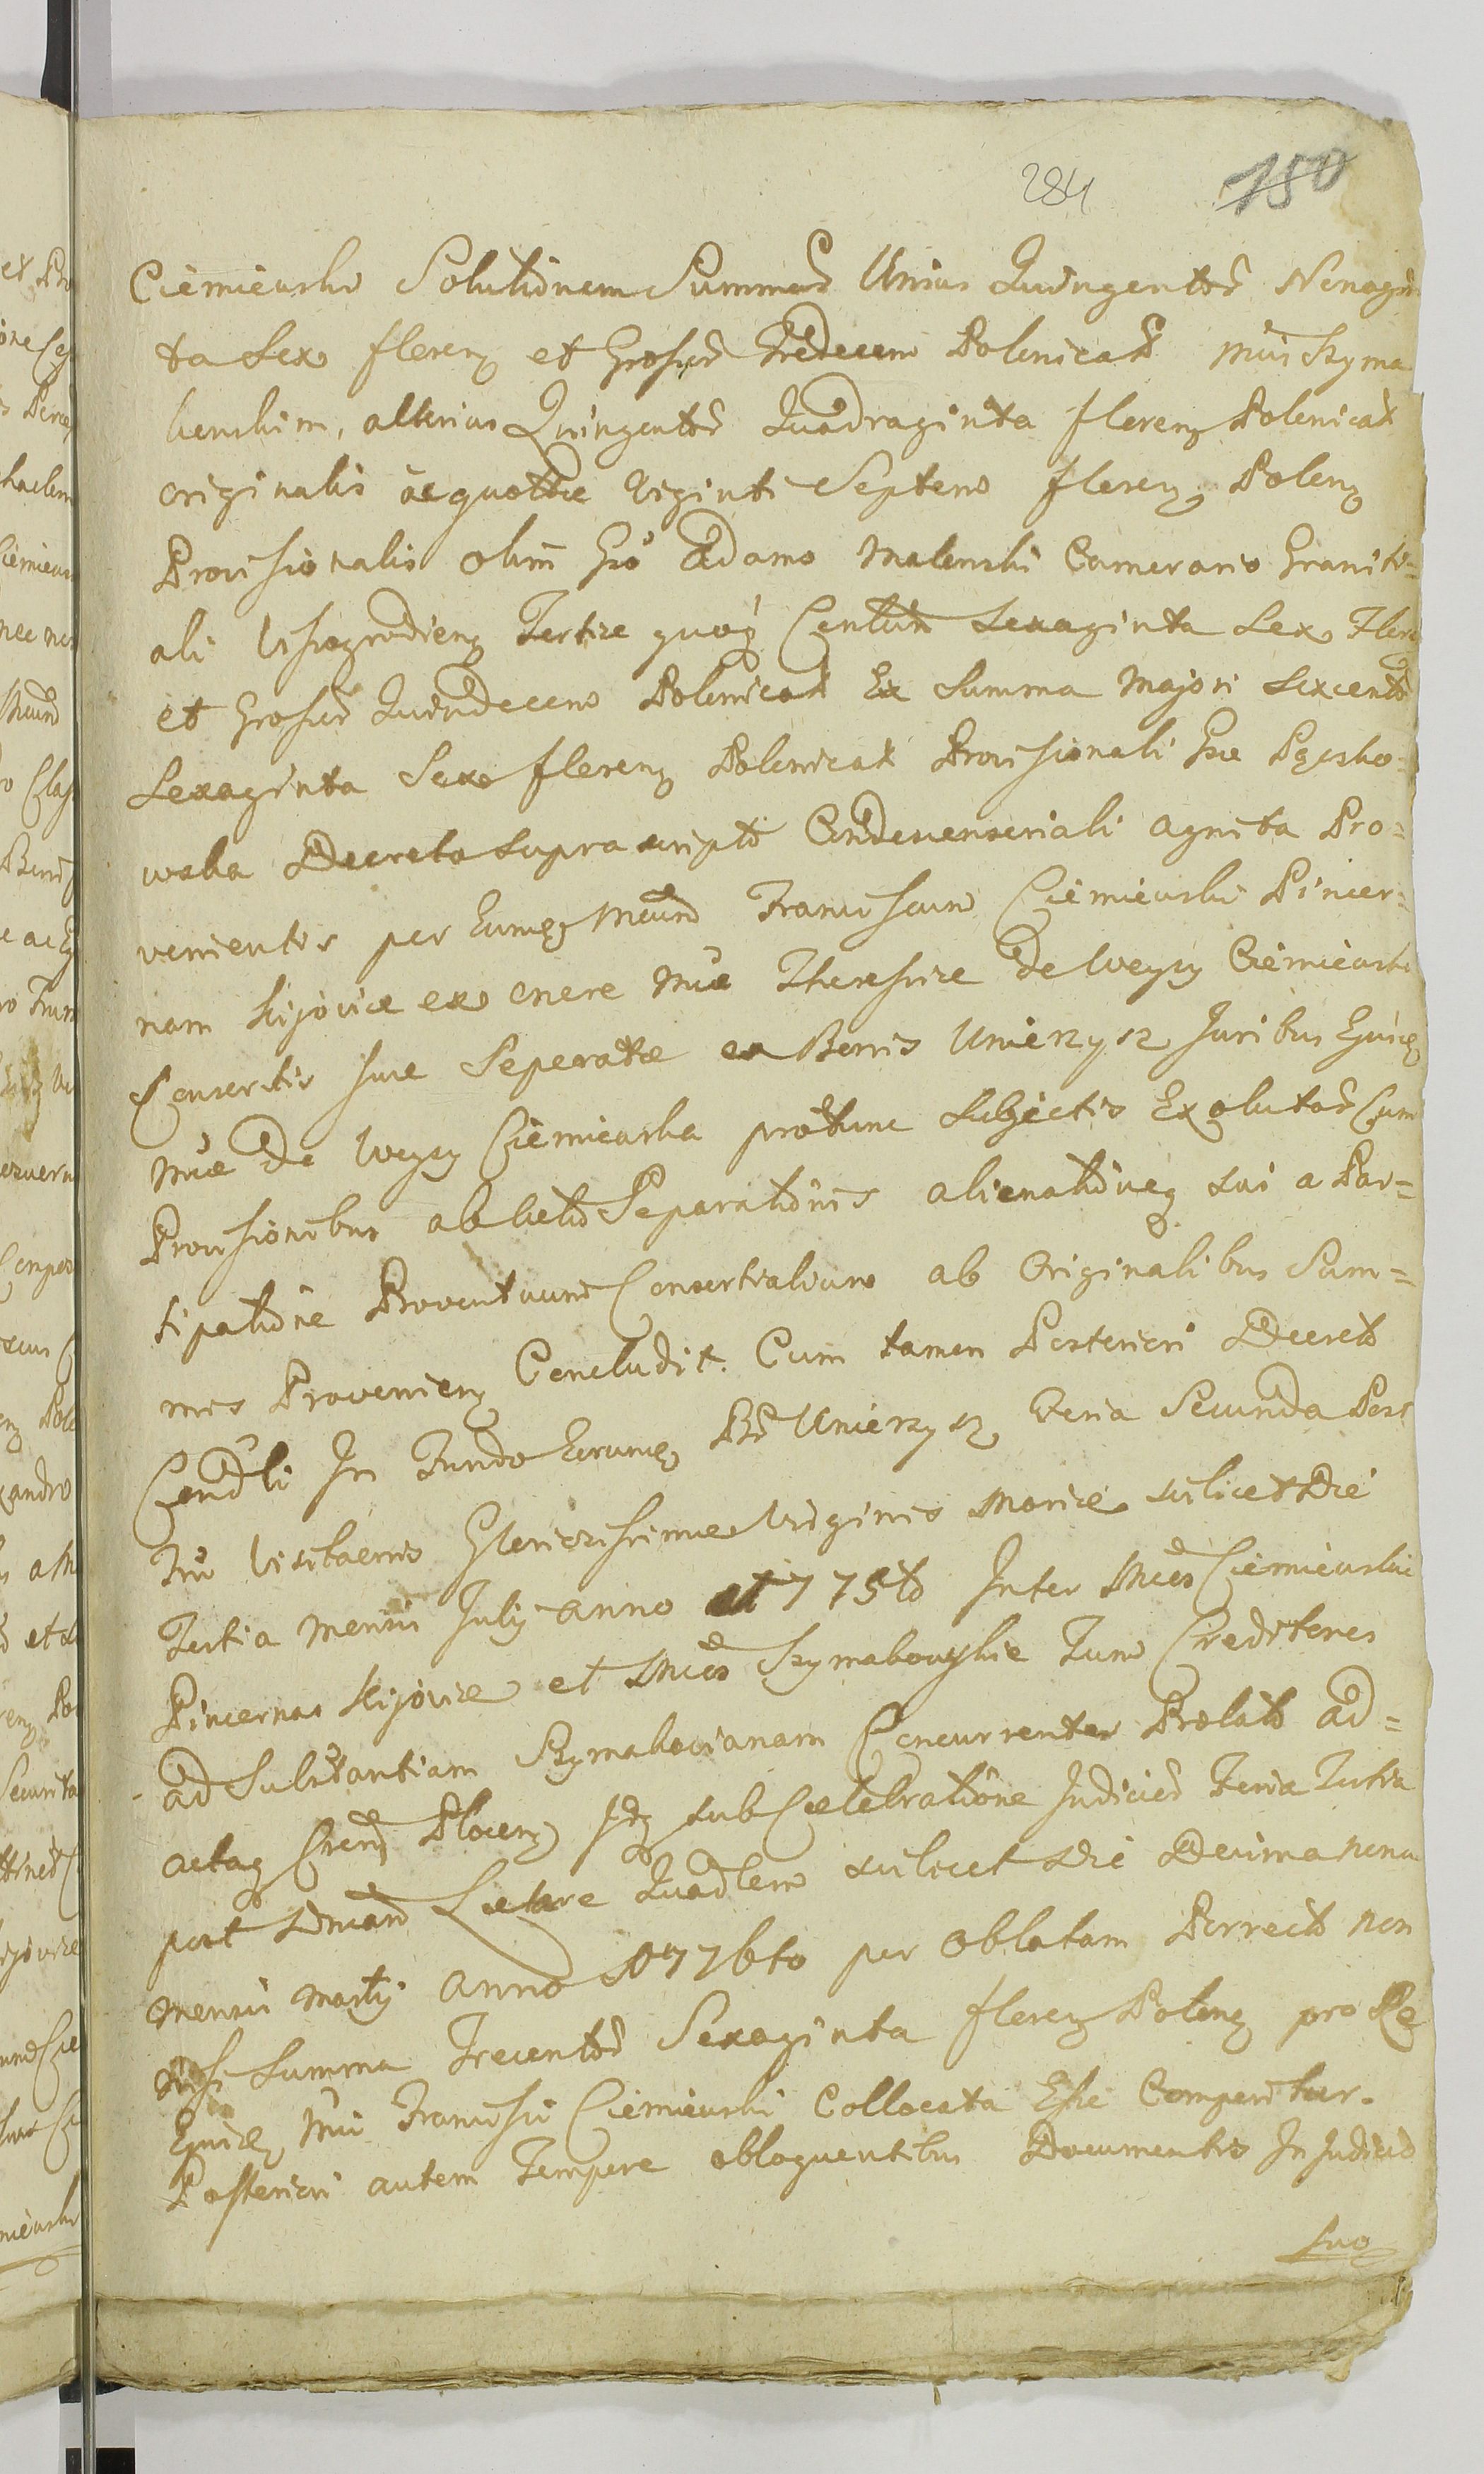 284 150
Ciemiewski Solutionem Summar Unius Quingentor Nonagin
ta Sex floreng et Grossor Tredecim Polonical mui Szyma
kowskim, alterius Quingentor Quadraginta floreng Polonical
originalis ac quottae viginti Septem floreng Poleng
Provisionalis olim Gso Adamo Malowski Camerario Graniti=
ali Vissogrodieng Tertiae quoq Centum Sexaginta Sex Flore
et Grossor Quindecem Polonical Ex Summa Majori Sexcento
Sexaginta Sex floreng Polonical Provisionali Gsae Pęzsko=
wska Decreto supra scripto Condescensoriali agnita Pro=
venientis per Eumq Mcum Franciscum Ciemiewski Pincer=
nam Kijoviae ex onere Mcae Theressiae de Wessy Ciemiewska
Consortis suae Seperatae ex Bonis Unierzysz Juribus Ejusd
Mcae de Wessy Ciemiewska protunc subjectis Exolutar Cum
Provisionibus ab actu Separationis alienationeq sui a Par=
ticipatione Proventuum Consortialium ab Originalibus Sum=
mis Provenieng Concludit. Cum tamen Posteriori Decreto
Condli In Fundo Eorumq Br Unierzysz Feria Secunda Post
Visitaonis Gloriosissimae Virginis Mariae scilicet Die
Tertia mensis July anno 775to Inter Mcos Ciemiewskie
Pincernas Kijoviae et Mcos Szymakowskie Tum Creditores
ad Substantiam Szymakovianam Concurrentes Prolato ad=
actaq Plocens sub Caelebratione Judicior Feria Tertia
post Dnicam Laetare Quadlem scilicet Die Decima nona
mensis Martij anno 1776to per Oblatam Porrecto non
nisi Summa Trecentor Sexaginta floreng Poleng pro Re
Ejusd Mci Francisci Ciemiewski Collocata Esse Comperitur.
Posteriori autem Tempore obloquentibus Documentis In Judicio
suo